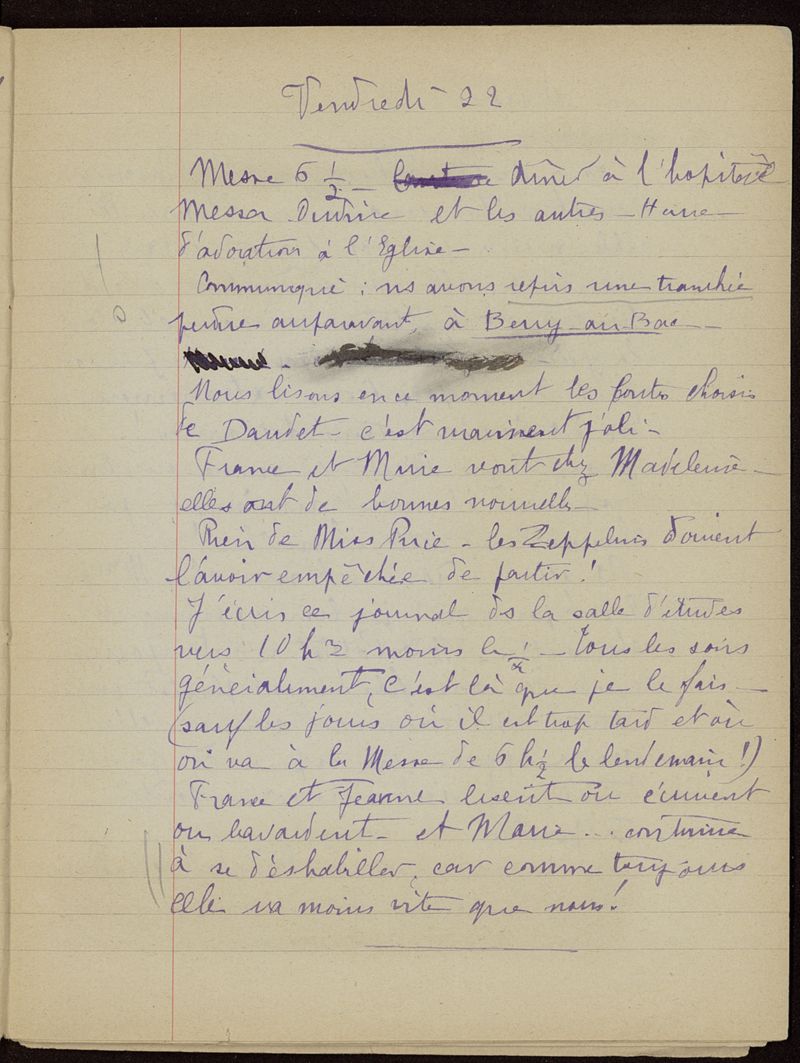 Vendredi 22
Messe 6 ½ — dîner à l'hopital
Messes et les autres — Heure
d'adoration à l'Eglise —
Communiqué : ns avons repris une tranchée
perdue auparavant, à Berry-au-Bac —
Nous lisons en ce moment les Contes choisis
de Daudet — c'est vraiment joli —
France et Marie vont chez Madeleine —
elles ont de bonnes nouvelles —
Rien de Miss — les Zeppelins doivent
l'avoir empêchée de partir !
J'écris ce journal ds la salle d'études
vers 10 h moins le ¼ — tous les soirs
généralement, c'est là que je le fais —
(sauf les jours où il est trop tard et où
on va à la Messe de 6 h ½ le lendemain !)
France et Jeanne lisent ou écrivent
ou bavardent — et Marie... continue
à se déshabiller, car comme toujours
elle va moins vite que nous !